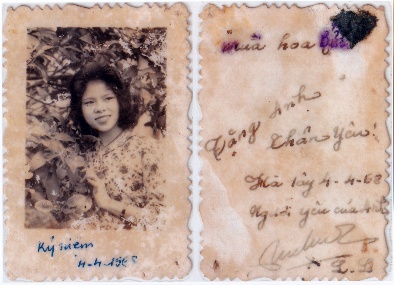 Kỷ niệm
4-4-1968
Mùa hoa
Tặng Anh
Thân Yêu!
4-4-68
Người yêu của